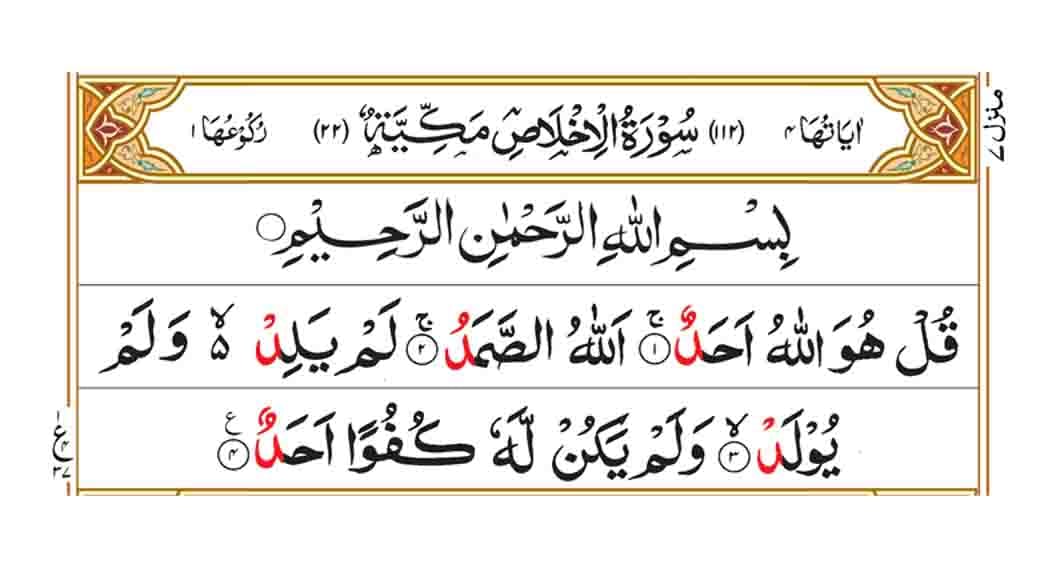 اٰيَاتُهَا ۴ (۱۱۲) سُوْرَةُ الْاِخْلَاصِ مَكِّيَّةٌ (۲۲) رُكُوْعُهَا ۱
منزل ۷
بِسْمِ اللّٰهِ الرَّحْمٰنِ الرَّحِيْمِ ۝
قُلْ هُوَ اللّٰهُ اَحَدٌ ۚ‏﴿۱﴾ اَللّٰهُ الصَّمَدُ ۚ‏﴿۲﴾ لَمْ يَلِدْ ۙ۵ وَلَمْ
يُوْلَدْ ۙ‏﴿۳﴾ وَلَمْ يَكُنْ لَّهٗ كُفُوًا اَحَدٌ ‏﴿۴﴾ ع
۱
ع ۴
۳۷